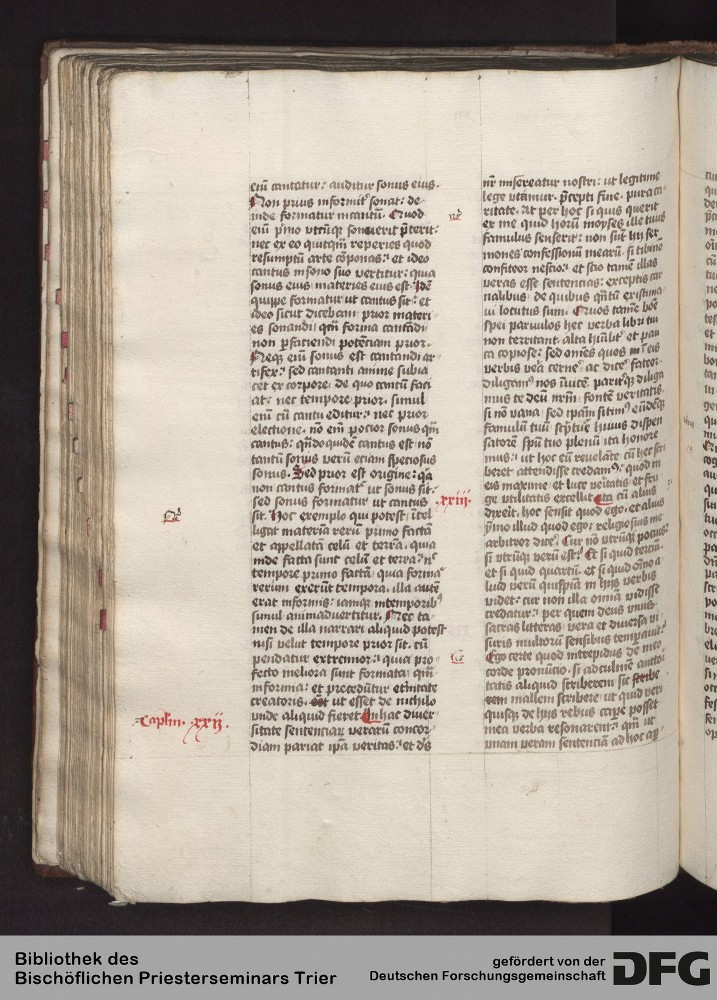 eiu cantatur: auditur sonus eius.
Non prius informit' sonat: de-
inde formatur in cantu. Quod
eni primo utcuque sonuerit preterit:
nec ex eo quicquam reperies quod
resumptu arte componas: et ideo
cantus in sono suo vertitur: quia
sonus eius materies eius est. Idem
quippe formatur ut cantus sit: et
ideo sicut dicebam: prior materi-
es sonandi quam forma cantandi
non per faciendi potenciam prior.
Neque eni sonus est cantandi ar-
tifex: sed cantanti anime subia-
cet ex corpore: de quo cantum faci-
at: nec tempore prior. simul
eni cum cantu editur: nec prior
electione. non eni pocior sonus quam
cantus: quandoquidem cantus est non
tantum sonus verum etiam speciosus
sonus. Sed prior est origine: quia
non cantus formatur ut sonus sit:
sed sonus formatur ut cantus
sit. Hoc exemplo qui potest intel-
ligat materiam rerum primo factam
et appellatam celum et terram. quia
inde facta sunt celum et terra: nec
tempore primo factam quia forme
rerum exerunt tempora. illa autem
erat informis: iamque in temporibus
simul animadvertitur. Nec ta-
men de illa narrari aliquid potest
nisi velut tempore prior sit. cum
pendatur extremior: quia pro-
fecto meliora sunt formata: quam
informia: et precedatur eternitate
creatoris. ut esset de nichilo
unde aliquid fieret. In hac diver-
sitate sententiarum verarum concor-
diam pariat ipsa veritas: et deus
Caplm. xxij.
noster misereatur nostri: ut legitime
lege utamur. precepti fine. pura ca-
ritate. Ac per hoc si quis querit
ex me quid horum moyses ille tuus
famulus senserit: non sunt hii ser-
mones confessionum mearum. si tibi non
confiteor nescio: et scio tamen illas
veras esse sentencias: exceptis car-
nalibus. de quibus quantum existima-
vi locutus sum. Quos tamen bone
spei parvulos hec verba libri tui
non territant alta humiliter et pau-
ca copiose: sed omnes quos in eis
verbis vera cernere ac dicere fateor.
diligamus nos invicem. pariterque diliga-
mus te deum nostrum. fontem veritatis.
si non vana. sed ipsam sitimus eundemque
famulum tuum scripture huius dispen-
satorem spiritu tuo plenum ita honore-
mus: ut hoc eum revelante cum hec scri-
beret attendisse credamus: quod in
eis maxime et luce veritatis et fru-
ge utilitatis excellit. Ita cum alius
xxiij.
dixerit. hoc sensit quod ego. et alius
ymmo illud quod ego: religiosius me
arbitror dicere. Cur non utrumque pocius:
si utrumque verum est: Et si quid tercium.
et si quid quartum. et si quid omnino a-
liud verum quispiam in hiis verbis
videt: cur non illa omnia vidisse
credatur: per quem deus unus
sacras litteras vera et diversa vi-
suris multorum sensibus temperavit:
Ego certe quod intrepidus de meo
corde pronuncio. si ad culmen aucto-
ritatis aliquid scriberem sic scribe-
rem mallem scribere: ut quid veri
quisque de hiis rebus capere posset
mea verba resonarent: quam ut
unam veram sentenciam ad hoc aper-
Bibliothek des
Bischöflichen Priesterseminars Trier
gefördert von der
Deutschen Forschungsgemeinschaft
DFG